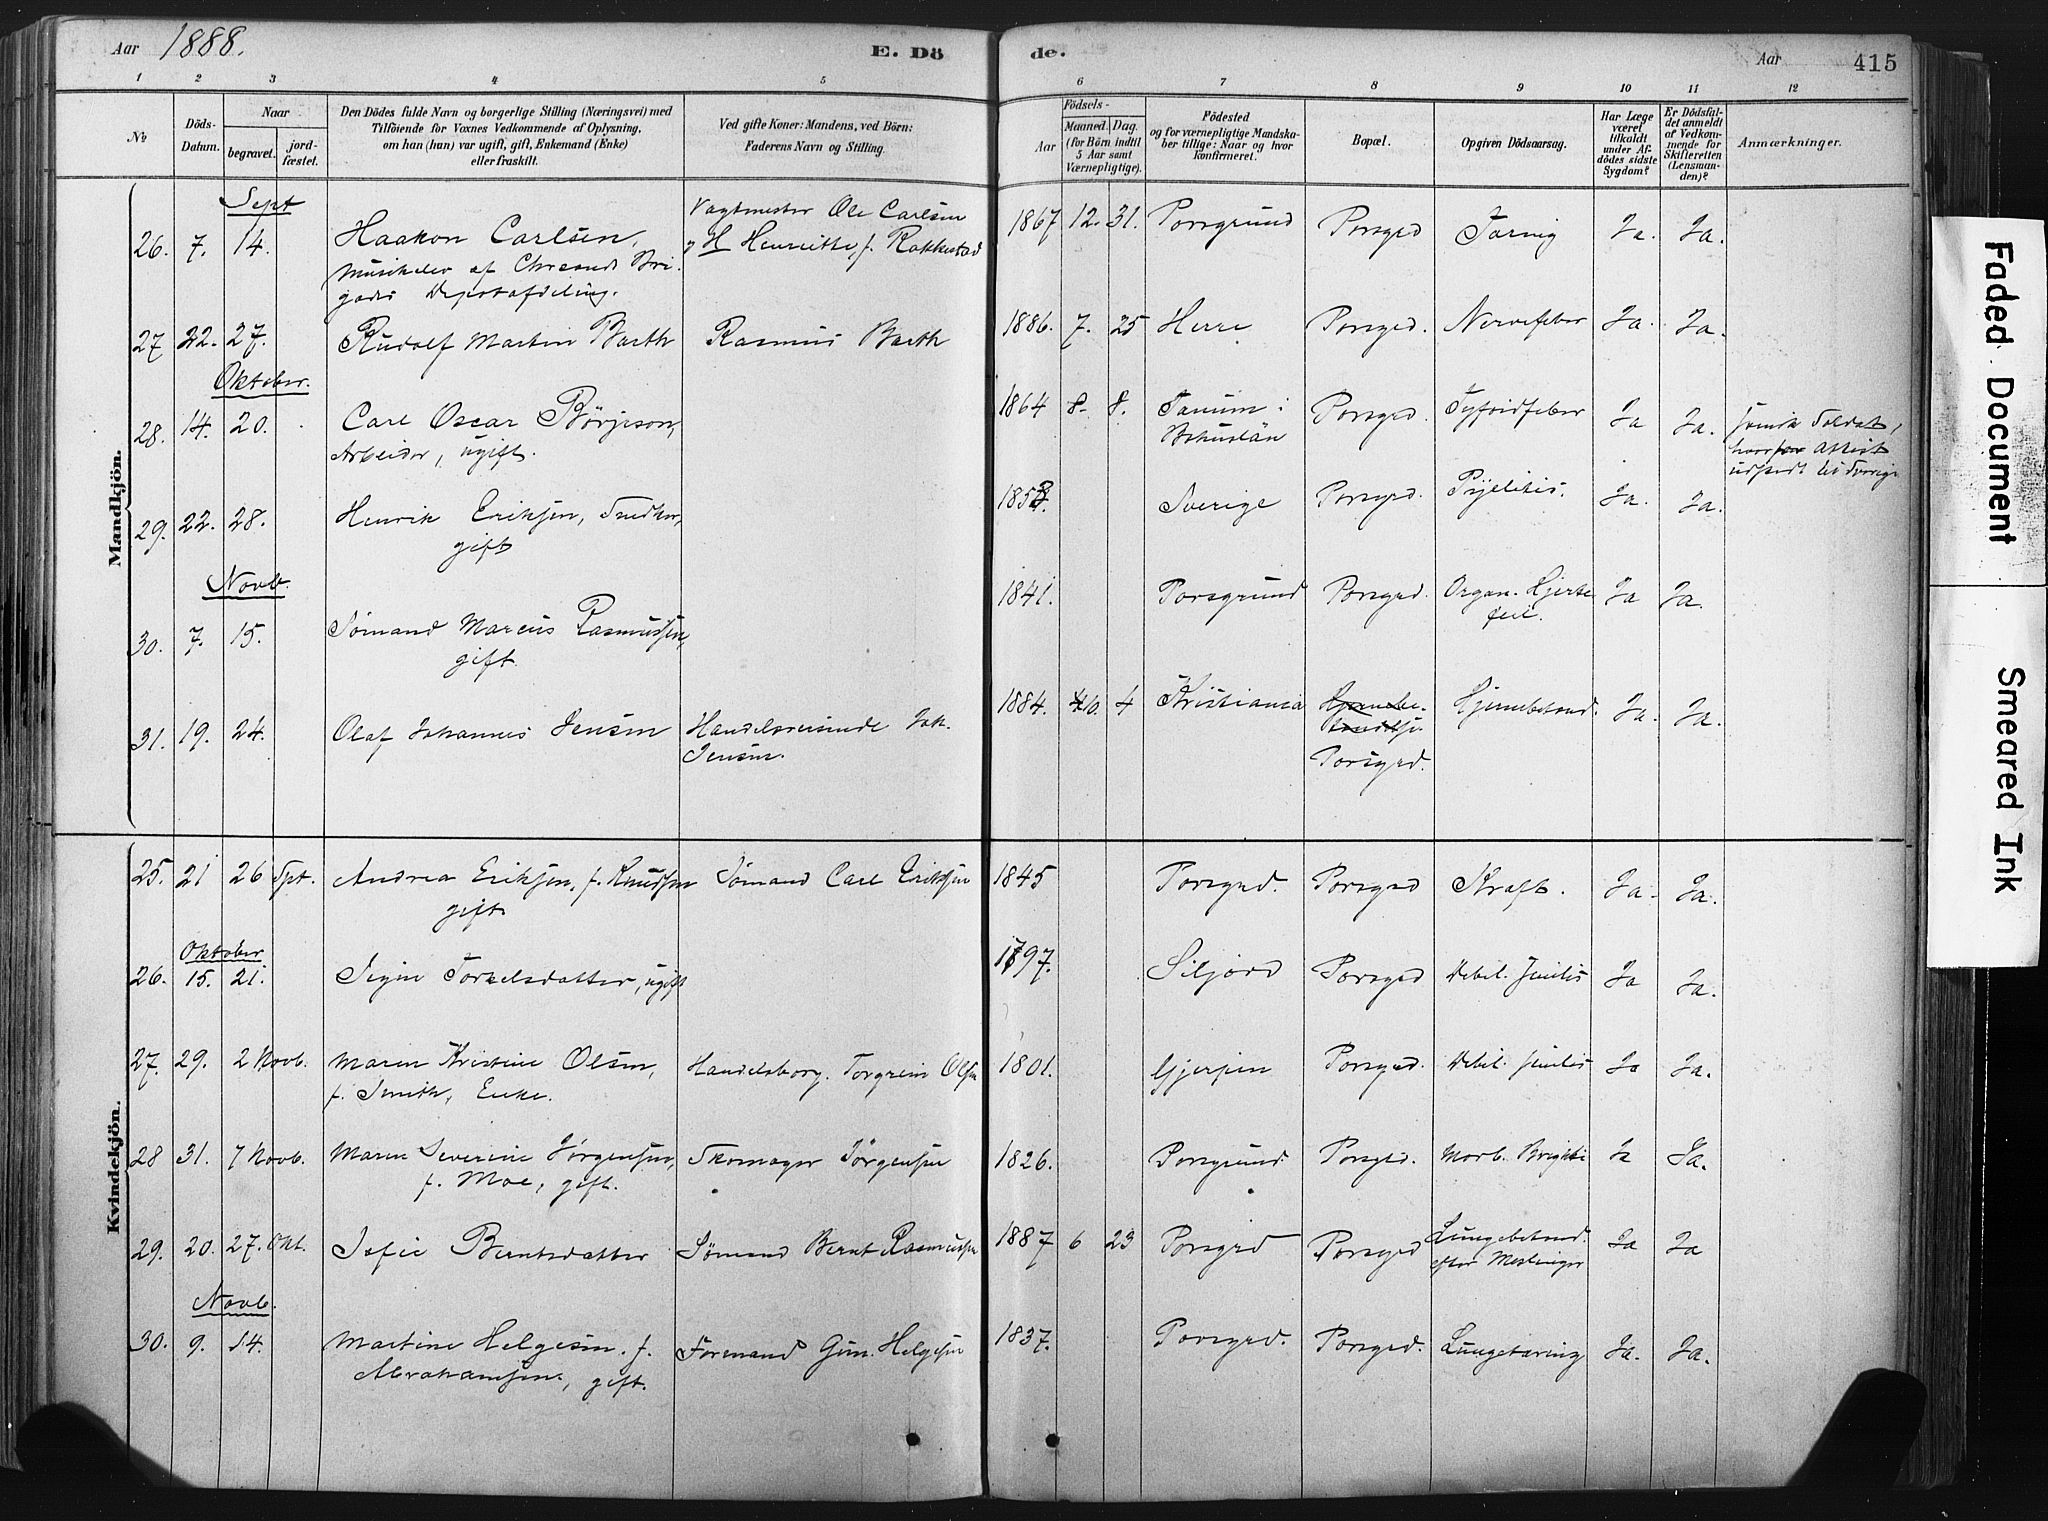 Aar 1888. E. Dö de. Aar 415
1 2 3 4 5 6 7 8 9 10 11 12
No
Döds-Datum.
Naar
begravet. jord-fæstet.
Den Dödes fulde Navn og borgerlige Stilling (Næringsvei) med
Tilföiende for Voxnes Vedkommende af Oplysning,
om han (hun) var ugift, gift, Enkemand (Enke)
eller fraskilt.
Ved gifte Koner: Mandens, ved Börn:
Faderens Navn og Stilling.
Födsels-
Aar Maaned. Dag.
(for Börn indtil
5 Aar samt
Værnepligtige).
Födested
og for værnepligtige Mandska-
ber tillige: Naar og hvor
konfirmeret.
Bopæl.
Opgiven Dödsaarsag.
Har Læge
været
tilkaldt
under Af-
dödes sidste
Sygdom?
Er Dödsfal-
det anmeldt
af Vedkom-
mende for
Skifteretten
(Lensman-
den)?
Anmærkninger.
Mandkjön.
Sept
26. 7. 14. Haakon Carlsen, Vagtmester Ole Carlsen 1867 12. 31. Porsgrund Porsgrd Tæring Ja. Ja.
Musikelev af Chrsands Bri-
gades Depotafdeling.
og H Henriette, f. Rakkestad
27 22. 27. Rudolf Martin Barth Rasmus Barth 1886. 7. 25 Herre Porsgrd. Nervefeber Ja. Ja.
Oktober.
28. 14. 20. Carl Oscar Børjeson, 1864 8. 8. Tanum i Porsgrd. Tyfoidfeber Ja Ja. svensk Soldat,
Arbeider, ugift. Bohuslän hvorfor Attest
udstedt til Sverige
29. 22. 28. Henrik Eriksen, Snedker, 1853. Sverige Porsgrd. Pyelitis. Ja. Ja.
gift
Novb.
30. 7. 15. Sømand Marcus Rasmussen, 1841. Porsgrund Porsgrd. Organ. Hjerte Ja Ja.
gift. feil.
31. 19. 24. Olaf Johannes Jensen Handelsreisende Joh. 1884. 10. 4 Kristiania Hjernebe- Hjernebetænd. Ja. Ja.
Jensen. Porsgrd.
Kvindekjön.
25. 21 26 Spt. Andrea Eriksen, f. Knudsen Sømand Carl Eriksen 1845 Porsgrd. Porsgrd Kræft. Ja. Ja.
gift
Oktober
26. 15. 21. Signe Torkelsdatter, ugift 1797. Siljord Porsgrd Debil. senilis Ja Ja.
27. 29. 2 Novb. Maren Kristine Olsen, Handelsborg. Torgrein Olsen 1801. Gjerpen Porsgrd. Debil. senilis Ja Ja.
f. Smith, Enke.
28 31. 7 Novb. Maren Severine Jørgensen, Skomager Jørgensen 1826. Porsgrund Porsgrd. Morb. Brighti Ja Ja.
f. Moe, gift.
29. 20. 27. Okt. Sofie Berntsdatter Sømand Bernt Rasmussen 1887 6 23 Porsgrd Porsgrd Lungebetænd. Ja Ja
efter Meslinger
Novb.
30. 9. 14. Martine Helgesen. f. Formand Gun. Helgesen 1837. Porsgrd. Porsgrd. Lungetæring Ja. Ja.
Abrahamsen, gift.
Faded Document
Smeared Ink